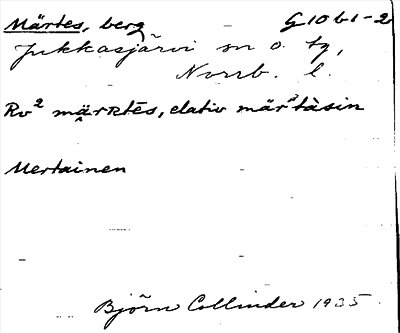 Märtes, berg G 10 b 1-2
Jukkasjärvi sn o. tg,
Norrb. l.
Rv² märRtēs, elativ mär²tàsin
Mertainen
Björn Collinder 1935